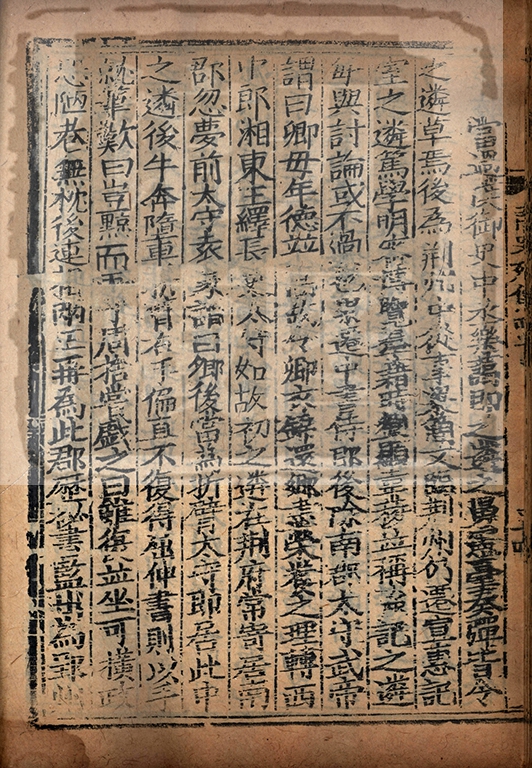 御史中丞樂藹即之遴之舅憲臺奏彈皆令
之遴草焉後為荊州中從事梁簡文臨荊州仍遷宣惠記
室之遴篤學明審博覽羣籍時劉顯韋稜並稱強記之遴
每與討論咸不過也累遷中書侍郎後除南郡太守武帝
謂曰卿母年德並高故令卿衣錦還鄉盡榮養之理轉西
中郎湘東王繹長史太守如故初之遴在荊府常寄居南
郡忽夢前太守袁彖謂曰卿後當為折臂太守即居此中
之遴後牛奔墮車折臂右手偏直不復得屈伸書則以手
就筆歎曰豈黥而王乎周捨嘗戲之曰雖復並坐可橫政
恐陋巷無枕後連相兩王再為此郡歷秘書監出為郢州